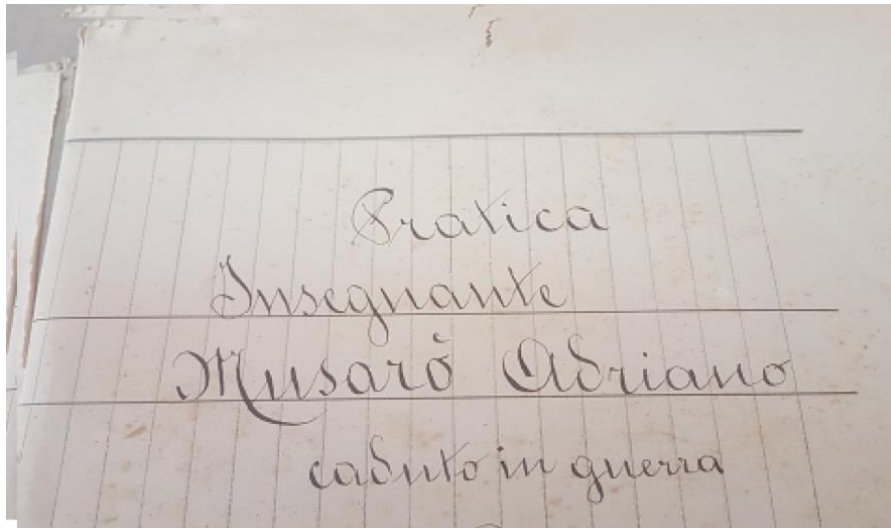 Pratica
Insegnante
Musarò Adriano
caduto in guerra